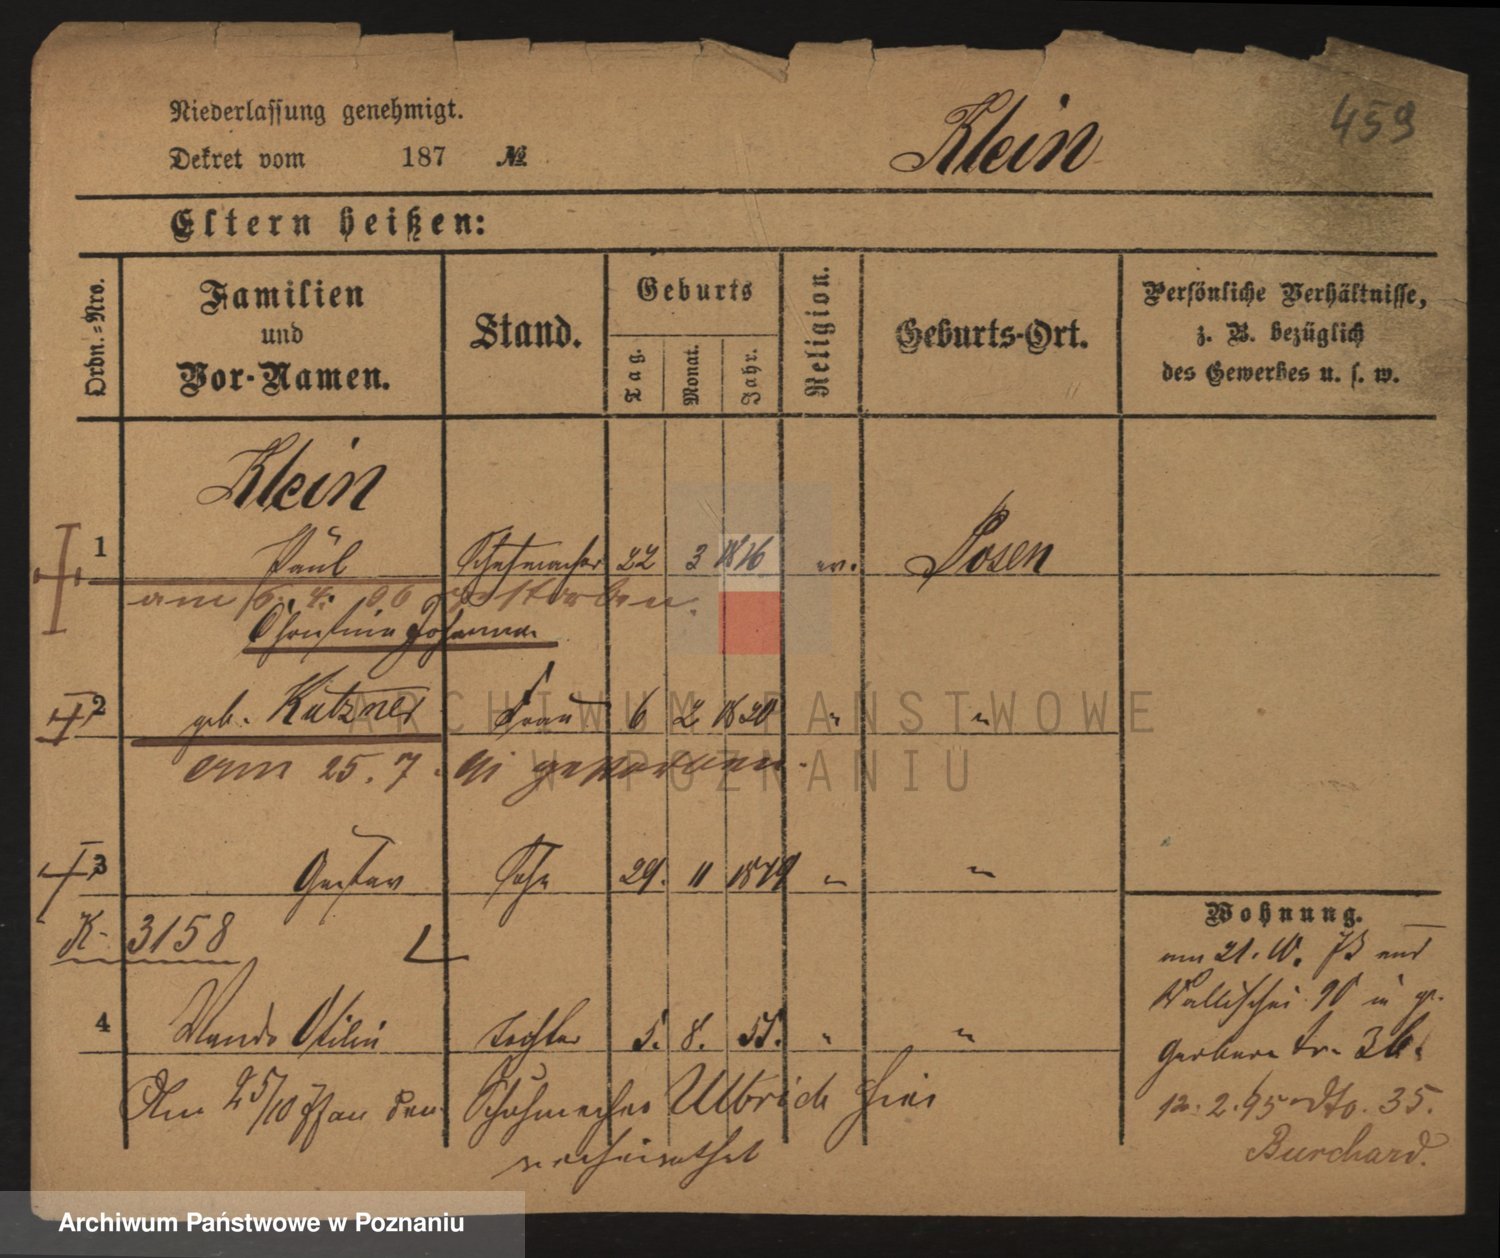 Niederlassung genehmigt.
Dekret vom 187 №
Klein
459
Eltern heißen:
Ordn.=Nro.
Familien
und
Vor-Namen.
Stand.
Geburts
Tag.
Monat.
Jahr.
Religion.
Geburts-Ort.
Persönliche Verhältnisse,
z. B. bezüglich
des Gewerbes u. s. w.
Klein
1 Paul Schuhmacher 22 3 1816 ev. Posen
am 6. 4. 06 gestorben.
Christine Johanna
2 geb. Kutzner Frau 6 2 1820 " "
am 25. 7. 91 gestorben.
3 Gustav Sohn 29. 11 1849 " "
K. 3158
4 Wanda Otilie Tochter 5. 8. 55. " "
Am 25/10 79 an den Schuhmacher Ulbrich hier
verheirathet
Wohnung.
am 21. 10. 73 aus
Wallischei 90 in gr.
Gerberstr. 36.
12. 2. 95 dto. 35.
Burchard.
ARCHIWUM PAŃSTWOWE
W POZNANIU
Archiwum Państwowe w Poznaniu